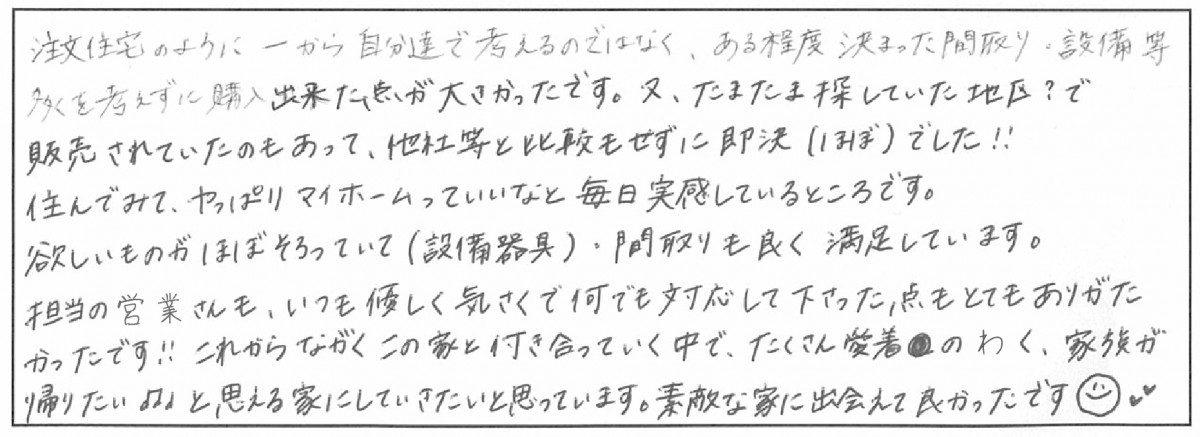 注文住宅のように一から自分達で考えるのではなく、ある程度決まった間取り・設備等
多くを考えずに購入出来た点が大きかったです。又、たまたま探していた地区?で
販売されていたのもあって、他社等と比較もせずに即決(ほぼ)でした!!
住んでみて、やっぱりマイホームっていいなと毎日実感しているところです。
欲しいものがほぼそろっていて(設備器具)・間取りも良く満足しています。
担当の営業さんも、いつも優しく気さくで何でも対応して下さった点もとてもありがた
かったです!!これからながくこの家と付き合っていく中で、たくさん愛着のわく、家族が
帰りたい♫♩と思える家にしていきたいと思っています。素敵な家に出会えて良かったです☺♥♥